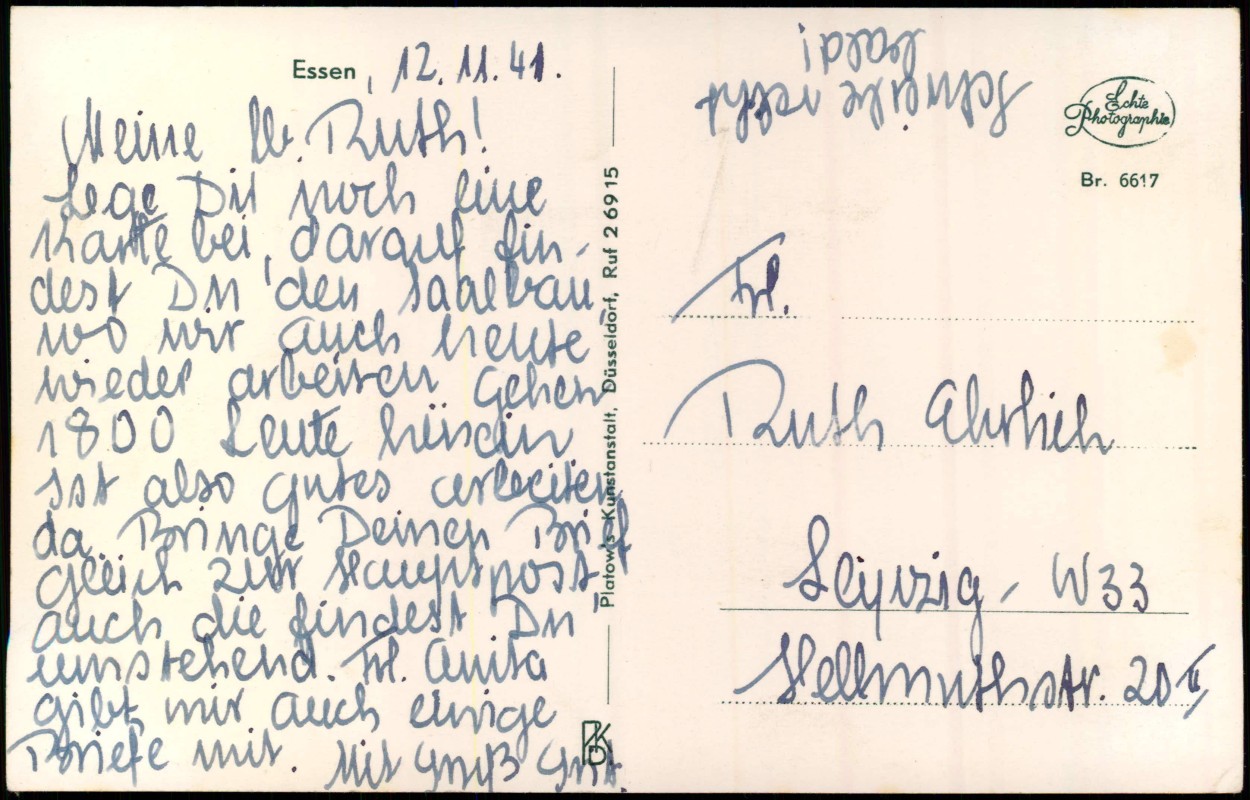 Essen, 12.11.41.
Meine lb. Ruth!
Lege Dir noch eine
Karte bei, darauf fin-
dest Du den Saalbau
wo wir auch heute
wieder arbeiten gehen
1800 Leute
ist also gutes arbeiten
da. Bringe Deinen Brief
gleich zur Hauptpost
auch die findest Du
umstehend. Frl. Anita
gibt mir auch einige
Briefe mit. Mit Gruß
Platow's Kunstanstalt, Düsseldorf, Ruf 2 69 15
PKD
Schreibe recht
bald!
Echte
Photographie
Br. 6617
Frl.
Ruth Ehrlich
Leipzig - W33
Hellmuthstr. 20 II